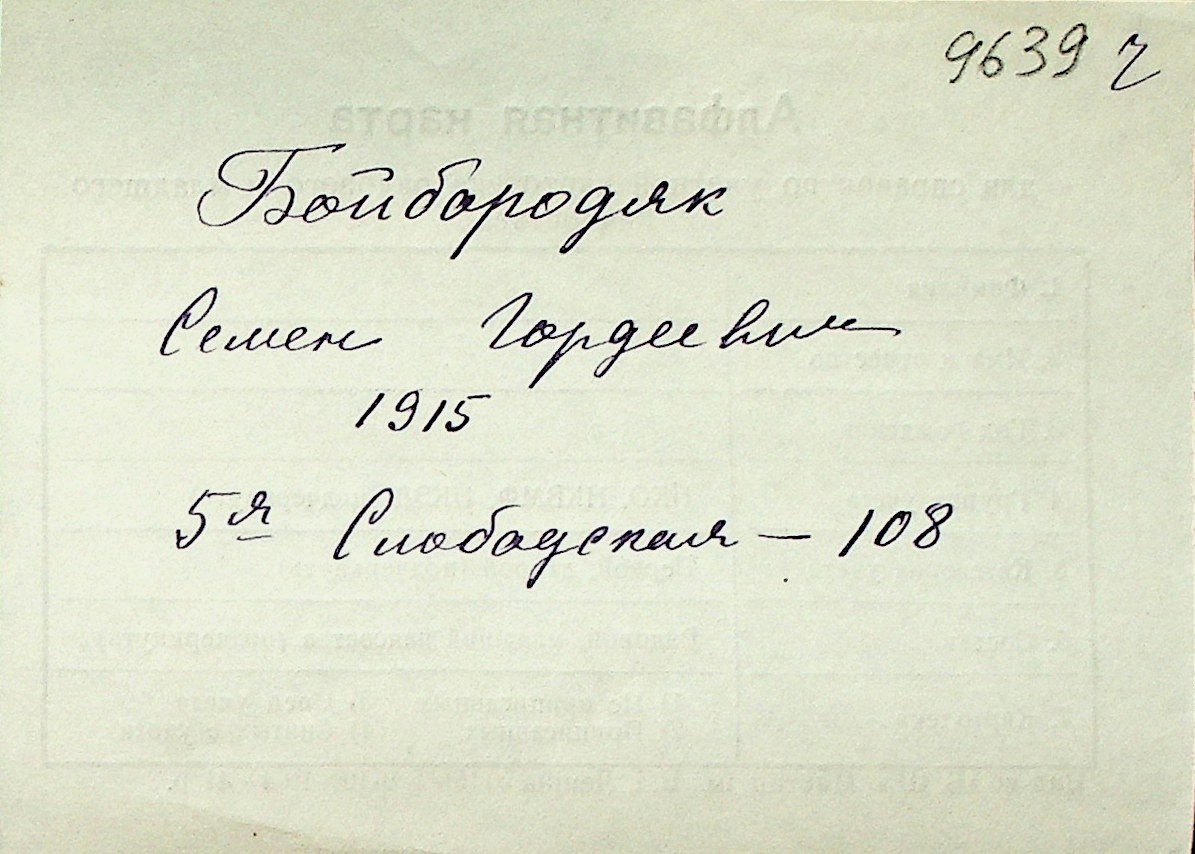 9639 г
Бойбородяк
Семен Гордеевич
1915
5я Слободская — 108